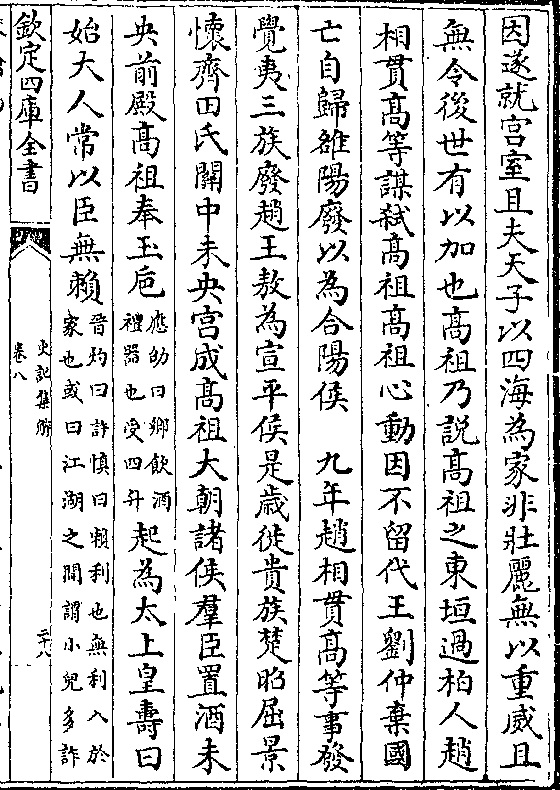 因遂就宫室且夫天子以四海為家非壯麗無以重威且
無令後世有以加也高祖乃說高祖之東垣過柏人趙
相貫高等謀弑高祖高祖心動因不留代王劉仲棄國
亡自歸雒陽廢以為合陽侯　九年趙相貫高等事發
覺夷三族廢趙王敖為宣平侯是歲徙貴族楚昭屈景
懷齊田氏關中未央宮成高祖大朝諸侯羣臣置酒未
央前殿高祖奉玉巵應劭曰鄉飲酒
禮器也受四升起為太上皇壽曰
始大人常以臣無賴晉灼曰許慎曰賴利也無利入於
家也或曰江湖之間謂小兒多詐
欽定四庫全書
史記集解
卷八
二十八